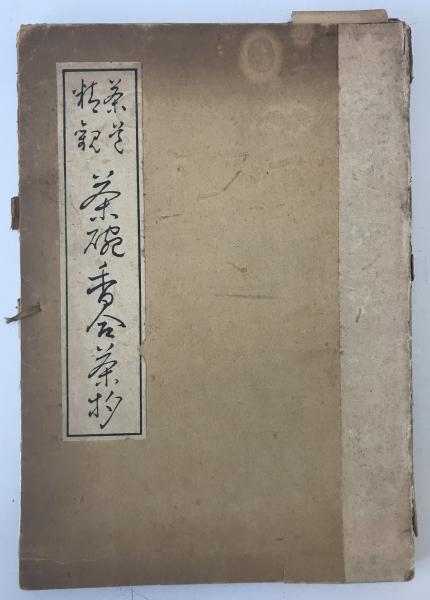 茶道
精観
茶碗香合茶杓